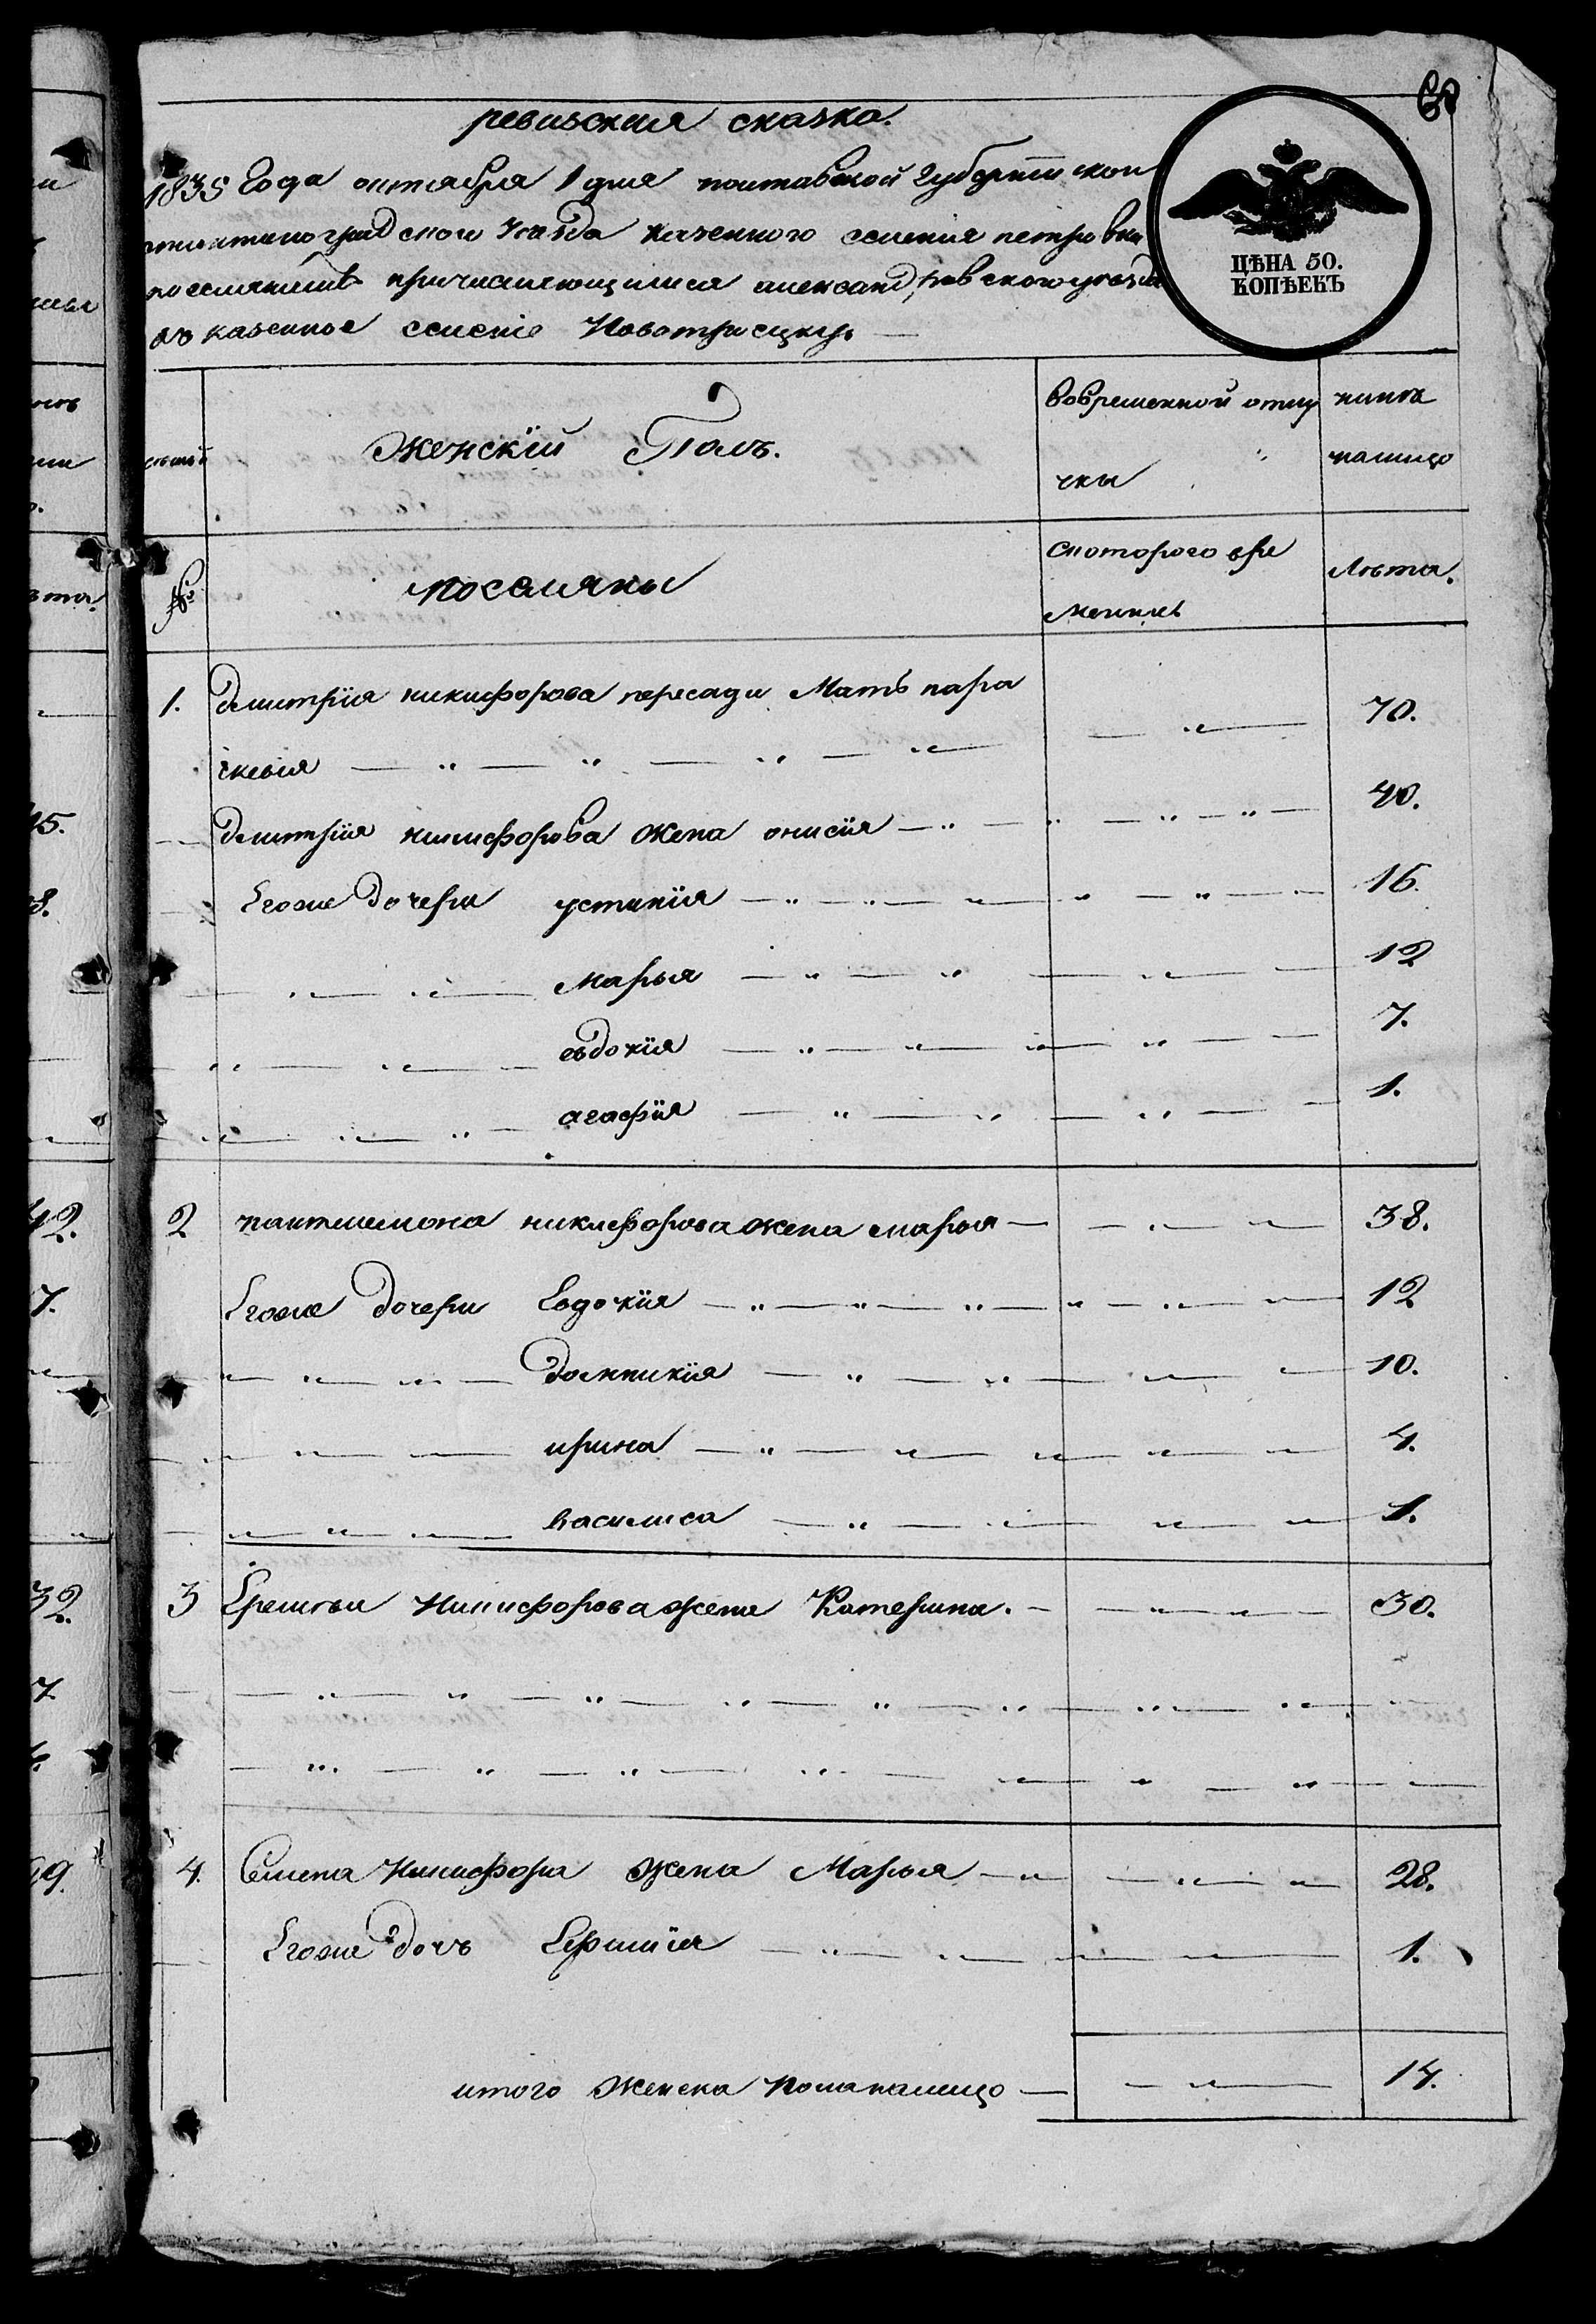 ревизская сказка.
1835 Года октября 1 дня полтавской Губернии
константиноградского уезда казенного селения петровки
поселянина причисляющимися александровского уезда
въ казенное селение Новотроецкую
ЦѢНА 50.
КОПѢЕКЪ
Женскій Полъ.
вовременной отлу
чки
ныне
налицо
№
поселяны
скоторого вре
мени
Лѣта.
1. дмитрія никифорова пересади Мать пара
скевия 70.
дмитрія никифорова жена онисія 40.
Егоже дочери устинія 16.
марья 12
евдокія 7.
агафія 1.
2 пантилимона никифорова жена марья 38.
Егоже дочери Евдокія 12
домникія 10.
ирина 4.
василиса 1.
3 Еремеи Никифорова жена Катерина. 30.
4. Семена Никифора жена Марья 28.
Егоже дочь Ефимія 1.
итого женска пола налицо 14.
42.
7.
32.
7